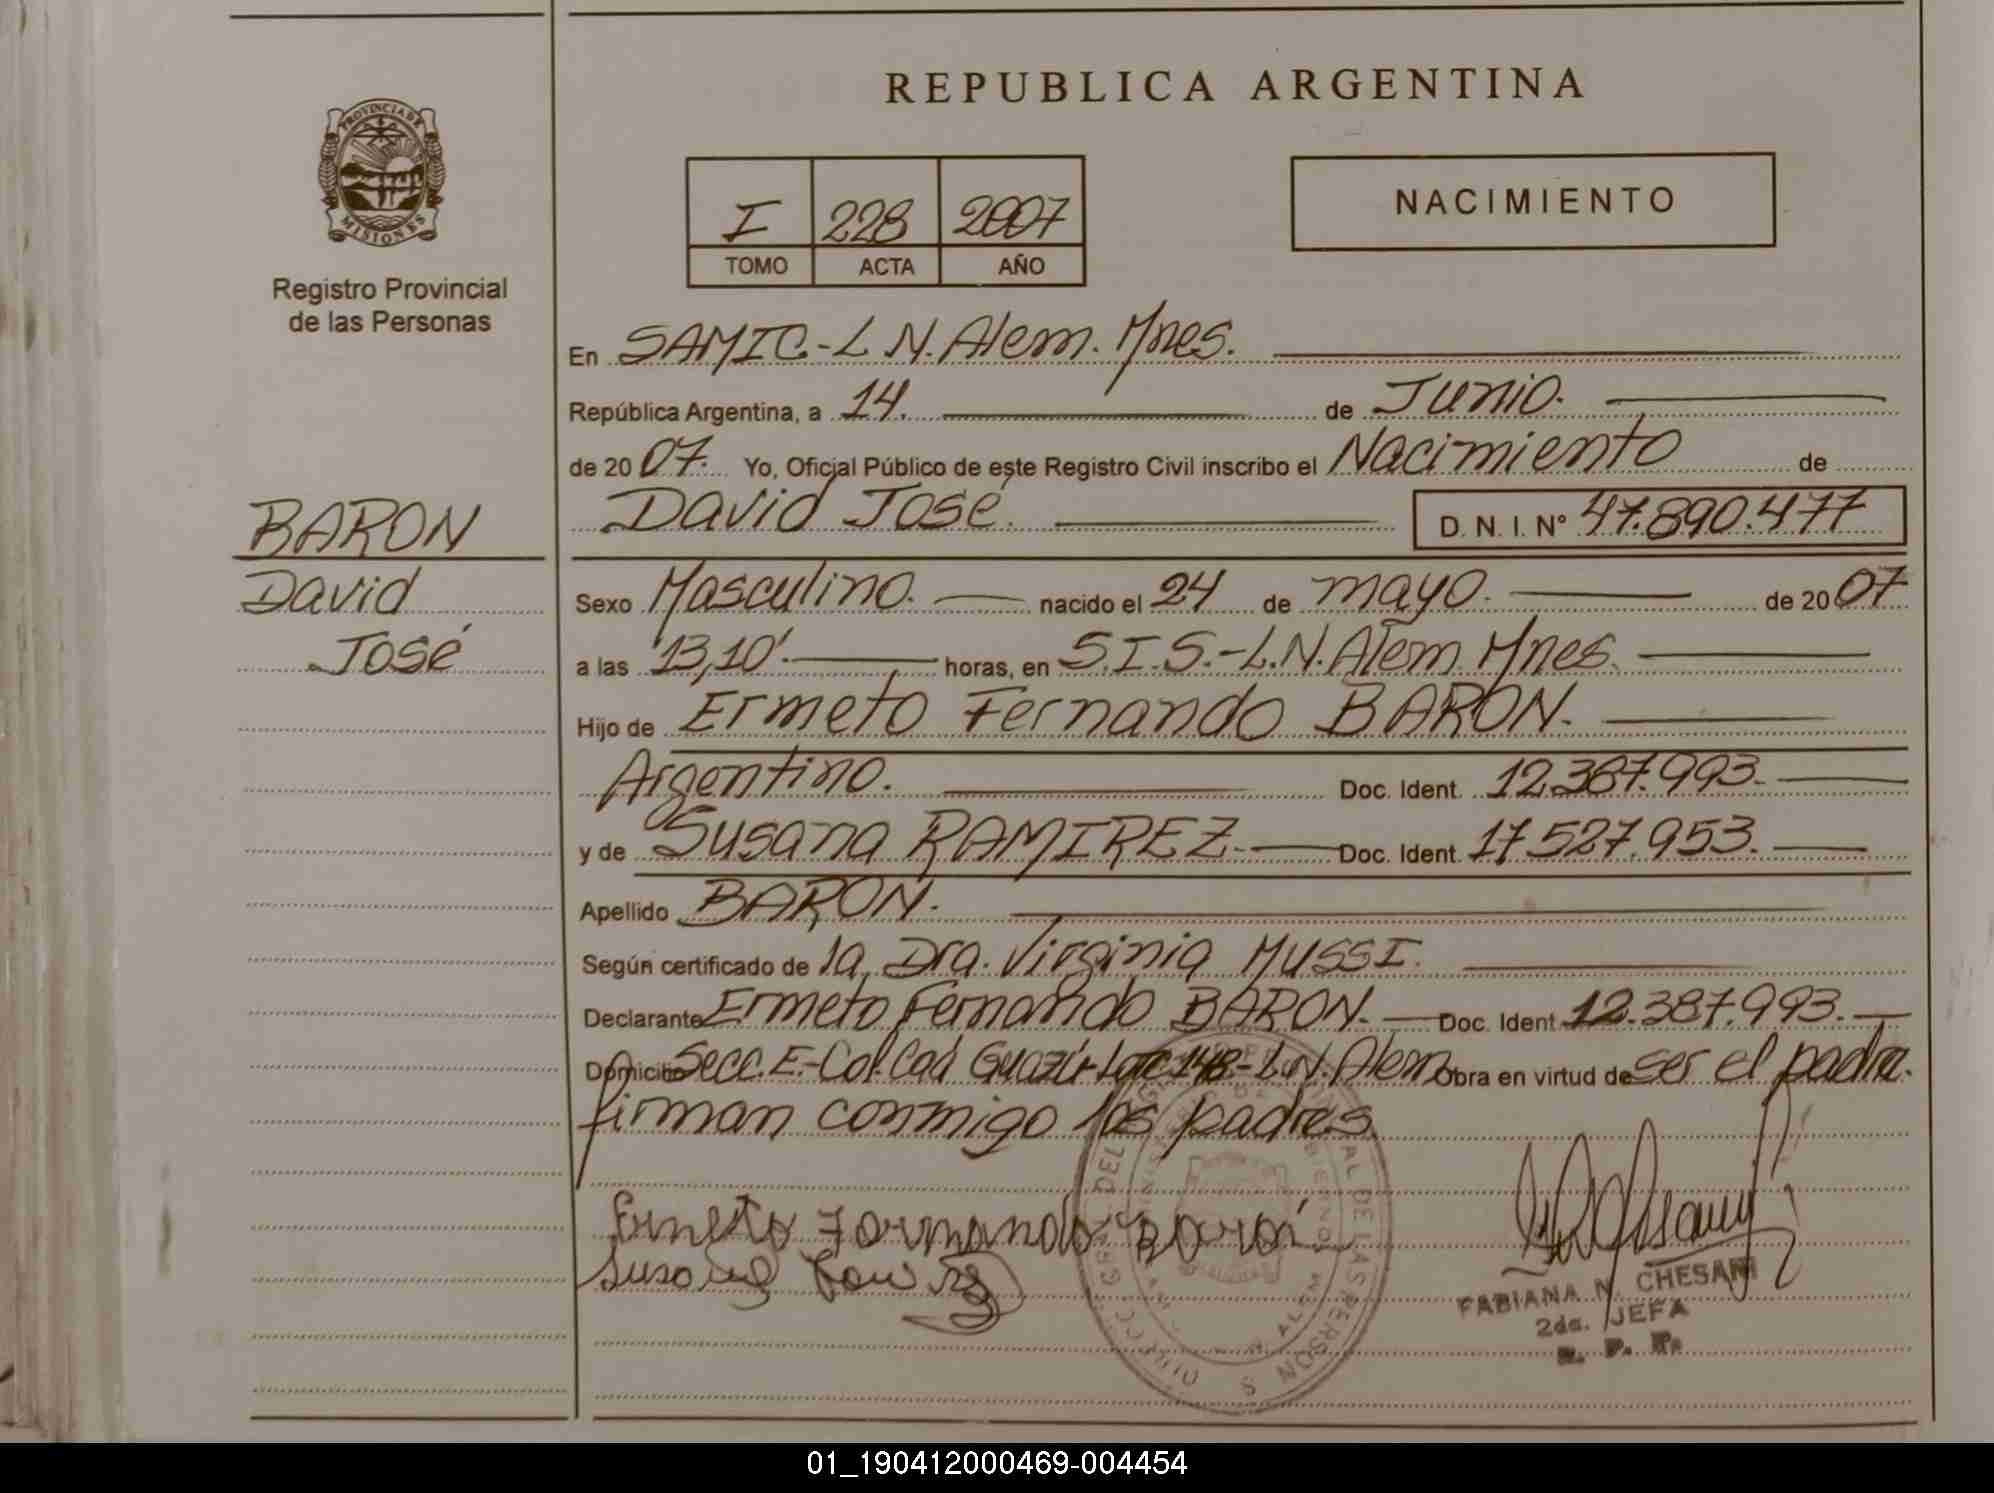 REPUBLICA ARGENTINA
PROVINCIA DE
MISIONES
Registro Provincial
de las Personas
I 228 2007
TOMO ACTA AÑO
NACIMIENTO
En SAMIC.-L.N.Alem. Mnes.
República Argentina, a 14. de Junio.
de 2007. Yo, Oficial Público de este Registro Civil inscribo el Nacimiento de
BARON
David
José
David José. D. N. I. N° 47.890.477
Sexo Masculino. nacido el 24 de mayo. de 2007
a las 13,10'. horas, en S.I.S.-L.N.Alem. Mnes.
Hijo de Ermeto Fernando BARON.
Argentino. Doc. Ident. 12.387.993.
y de Susana RAMIREZ. Doc. Ident. 17.527.953.
Apellido BARON.
Según certificado de la, Dra. Virginia MUSSI.
Declarante Ermeto Fernando BARON. Doc. Ident. 12.387.993.
Domicilio Secc. E.-Col. Caá Guazú-Lote 148-L.N.Alem Obra en virtud de ser el padre.
firman conmigo los padres
FABIANA N. CHESARI
2da. JEFA
R. P. P.
01_190412000469-004454